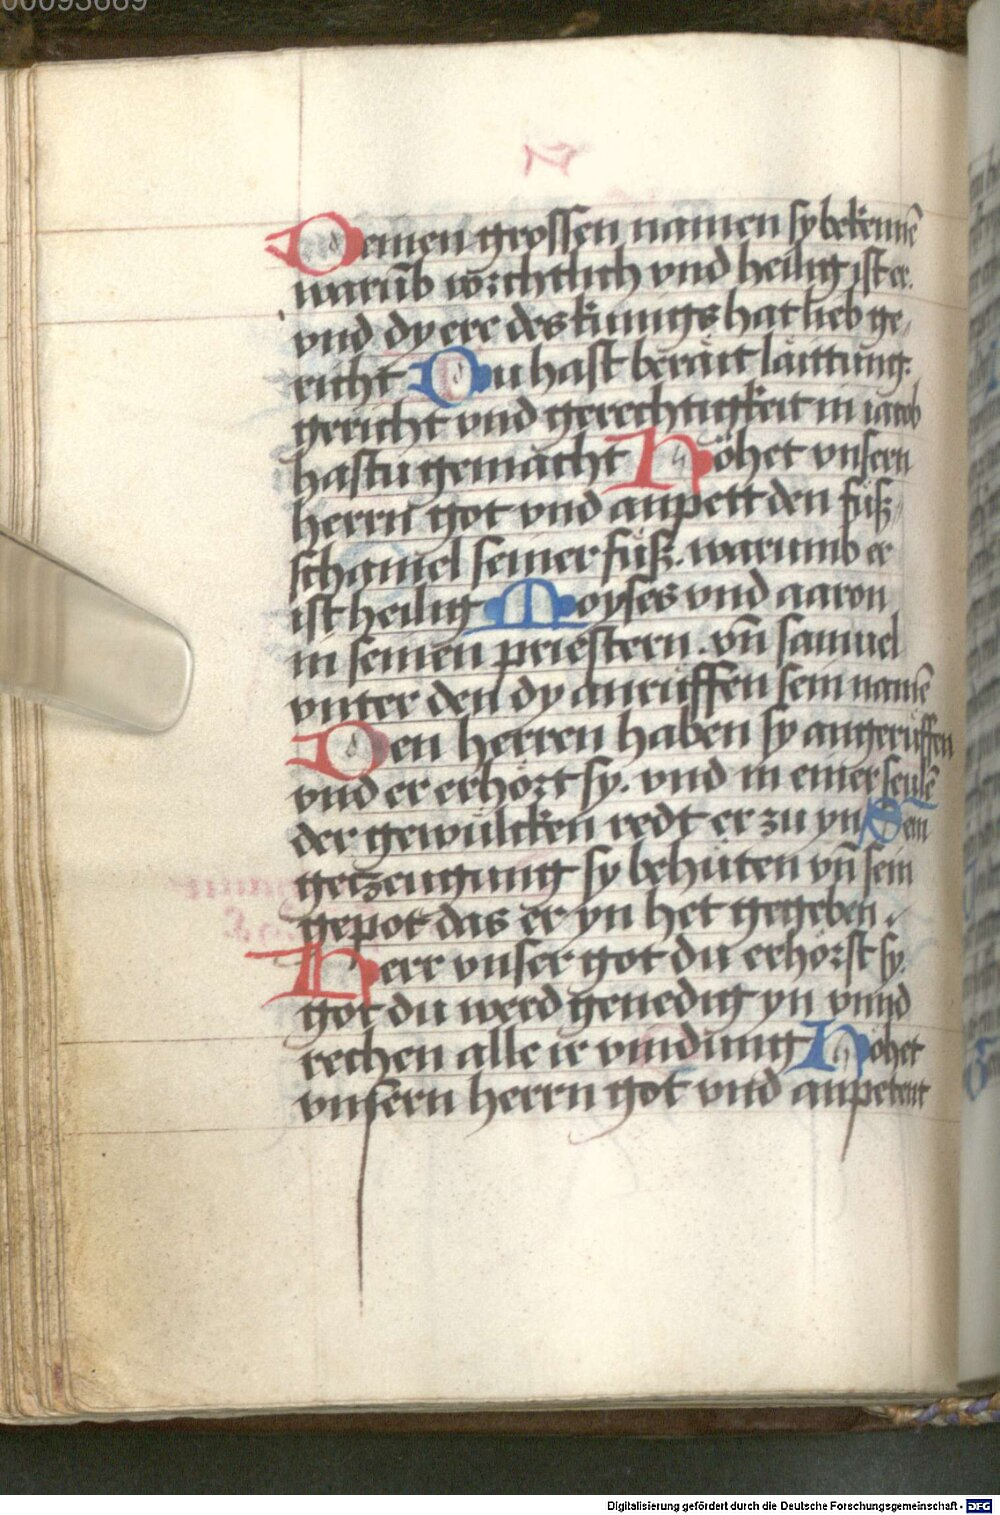 00093669
Deinen grossen namen sy bekennē
warūb vorchtlich vnd heilig ist er.
vnd dy ere des kunigs hat lieb ge„
richt Du hast berait laittung.
gericht vnd gerechtigkeit in iacob
hastu gemacht Höhet vnsern
herrn got vnd anpett den füß„
schamel seiner füß. warumb er
ist heilig Moyses vnd aaron
in seinen priestern. vn̄ samuel
vnter den dy anruffen sein namē
Den herren haben sy angeruffen
vnd er erhört sy. vnd in einer seulē
der gewulcken redt er zu yn Sein
getzeugung sy behüten vn̄ sein
gepot das er yn het gegeben.
Herr vnser got du erhörst sy.
got du werd genedig yn vnnd
rechen alle ir vindung Höhet
vnsern herrn got vnd anpetent
Digitalisierung gefördert durch die Deutsche Forschungsgemeinschaft - DFG